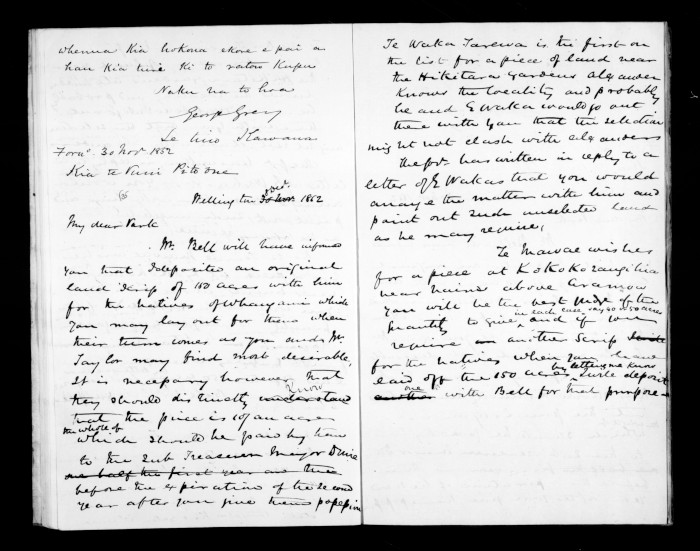 whenua kia hokona ekore e pai a
hau kia tini ki to ratou kupu
Naku na to hoa
George Grey
Te
30 Nov. 1852
Kia te Puni Pito one
Welling ton 30 Nov. 1852
Dec.
My dear Park
Mr. Bell will have informed
you that I deposited an original
land scrip of 150 acres with him
for the natives of Whanganui which
you may lay out for them when
their turn comes as you and Mr.
Taylor may find most desirable,
It is necessary however that
they should distinctly understand
know
that the price is 10/ an acre
the whole of
which should be paid by them
to the Sub Treasurer Major Durie
one half the first year and three
before the expiration of the second
year after you give them possession
Te Waka Tarewa is the first on
the list for a piece of land near
the Hiketara Gardens Alexander
knows the locality and probably
he and E Waka would go out
there with you that the selection
might not clash with Alexanders
The Govr. has written in reply to a
letter of E Wakas that you would
arrange the matter with him and
point out such unselected land
as he may require,
Te Mawae wishes
for a piece at
near above Aramoho
you will be the best judge of the
in each case say 30 or 50 acres
quantity to give, and if you
require an another Scrip
for the natives when you have
by letting me know
laid off the 150 acres I will deposit
another
one
with Bell for that purpose